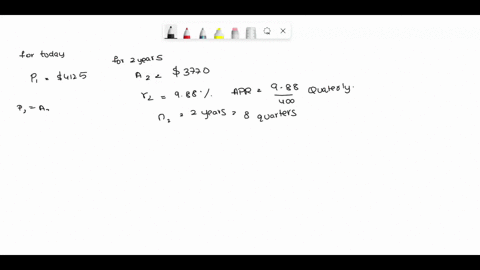 for today
P₁ = $4125
for 2 years
A₂ = $3720
r₂ = 9.88% APR = 9.88/400 Quaterly.
n₂ = 2 years = 8 quarters
P₂ = A₂